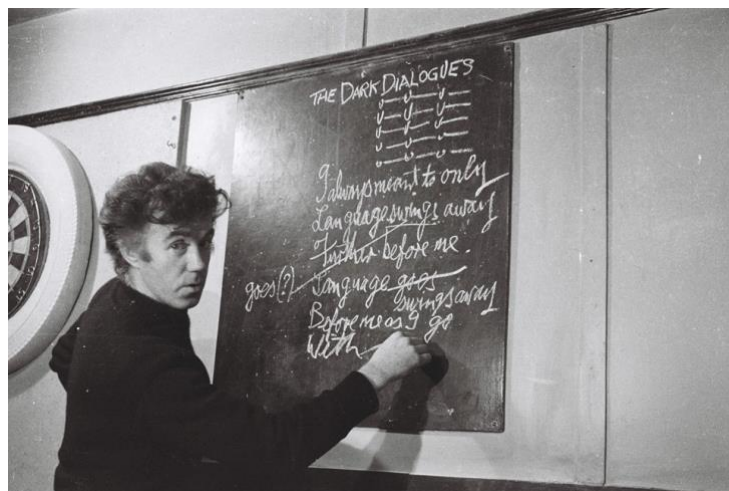 THE DARK DIALOGUES
I always meant to only
Language swings away
Further before me.
goes(?) Language goes
swings away
Before me as I go
With